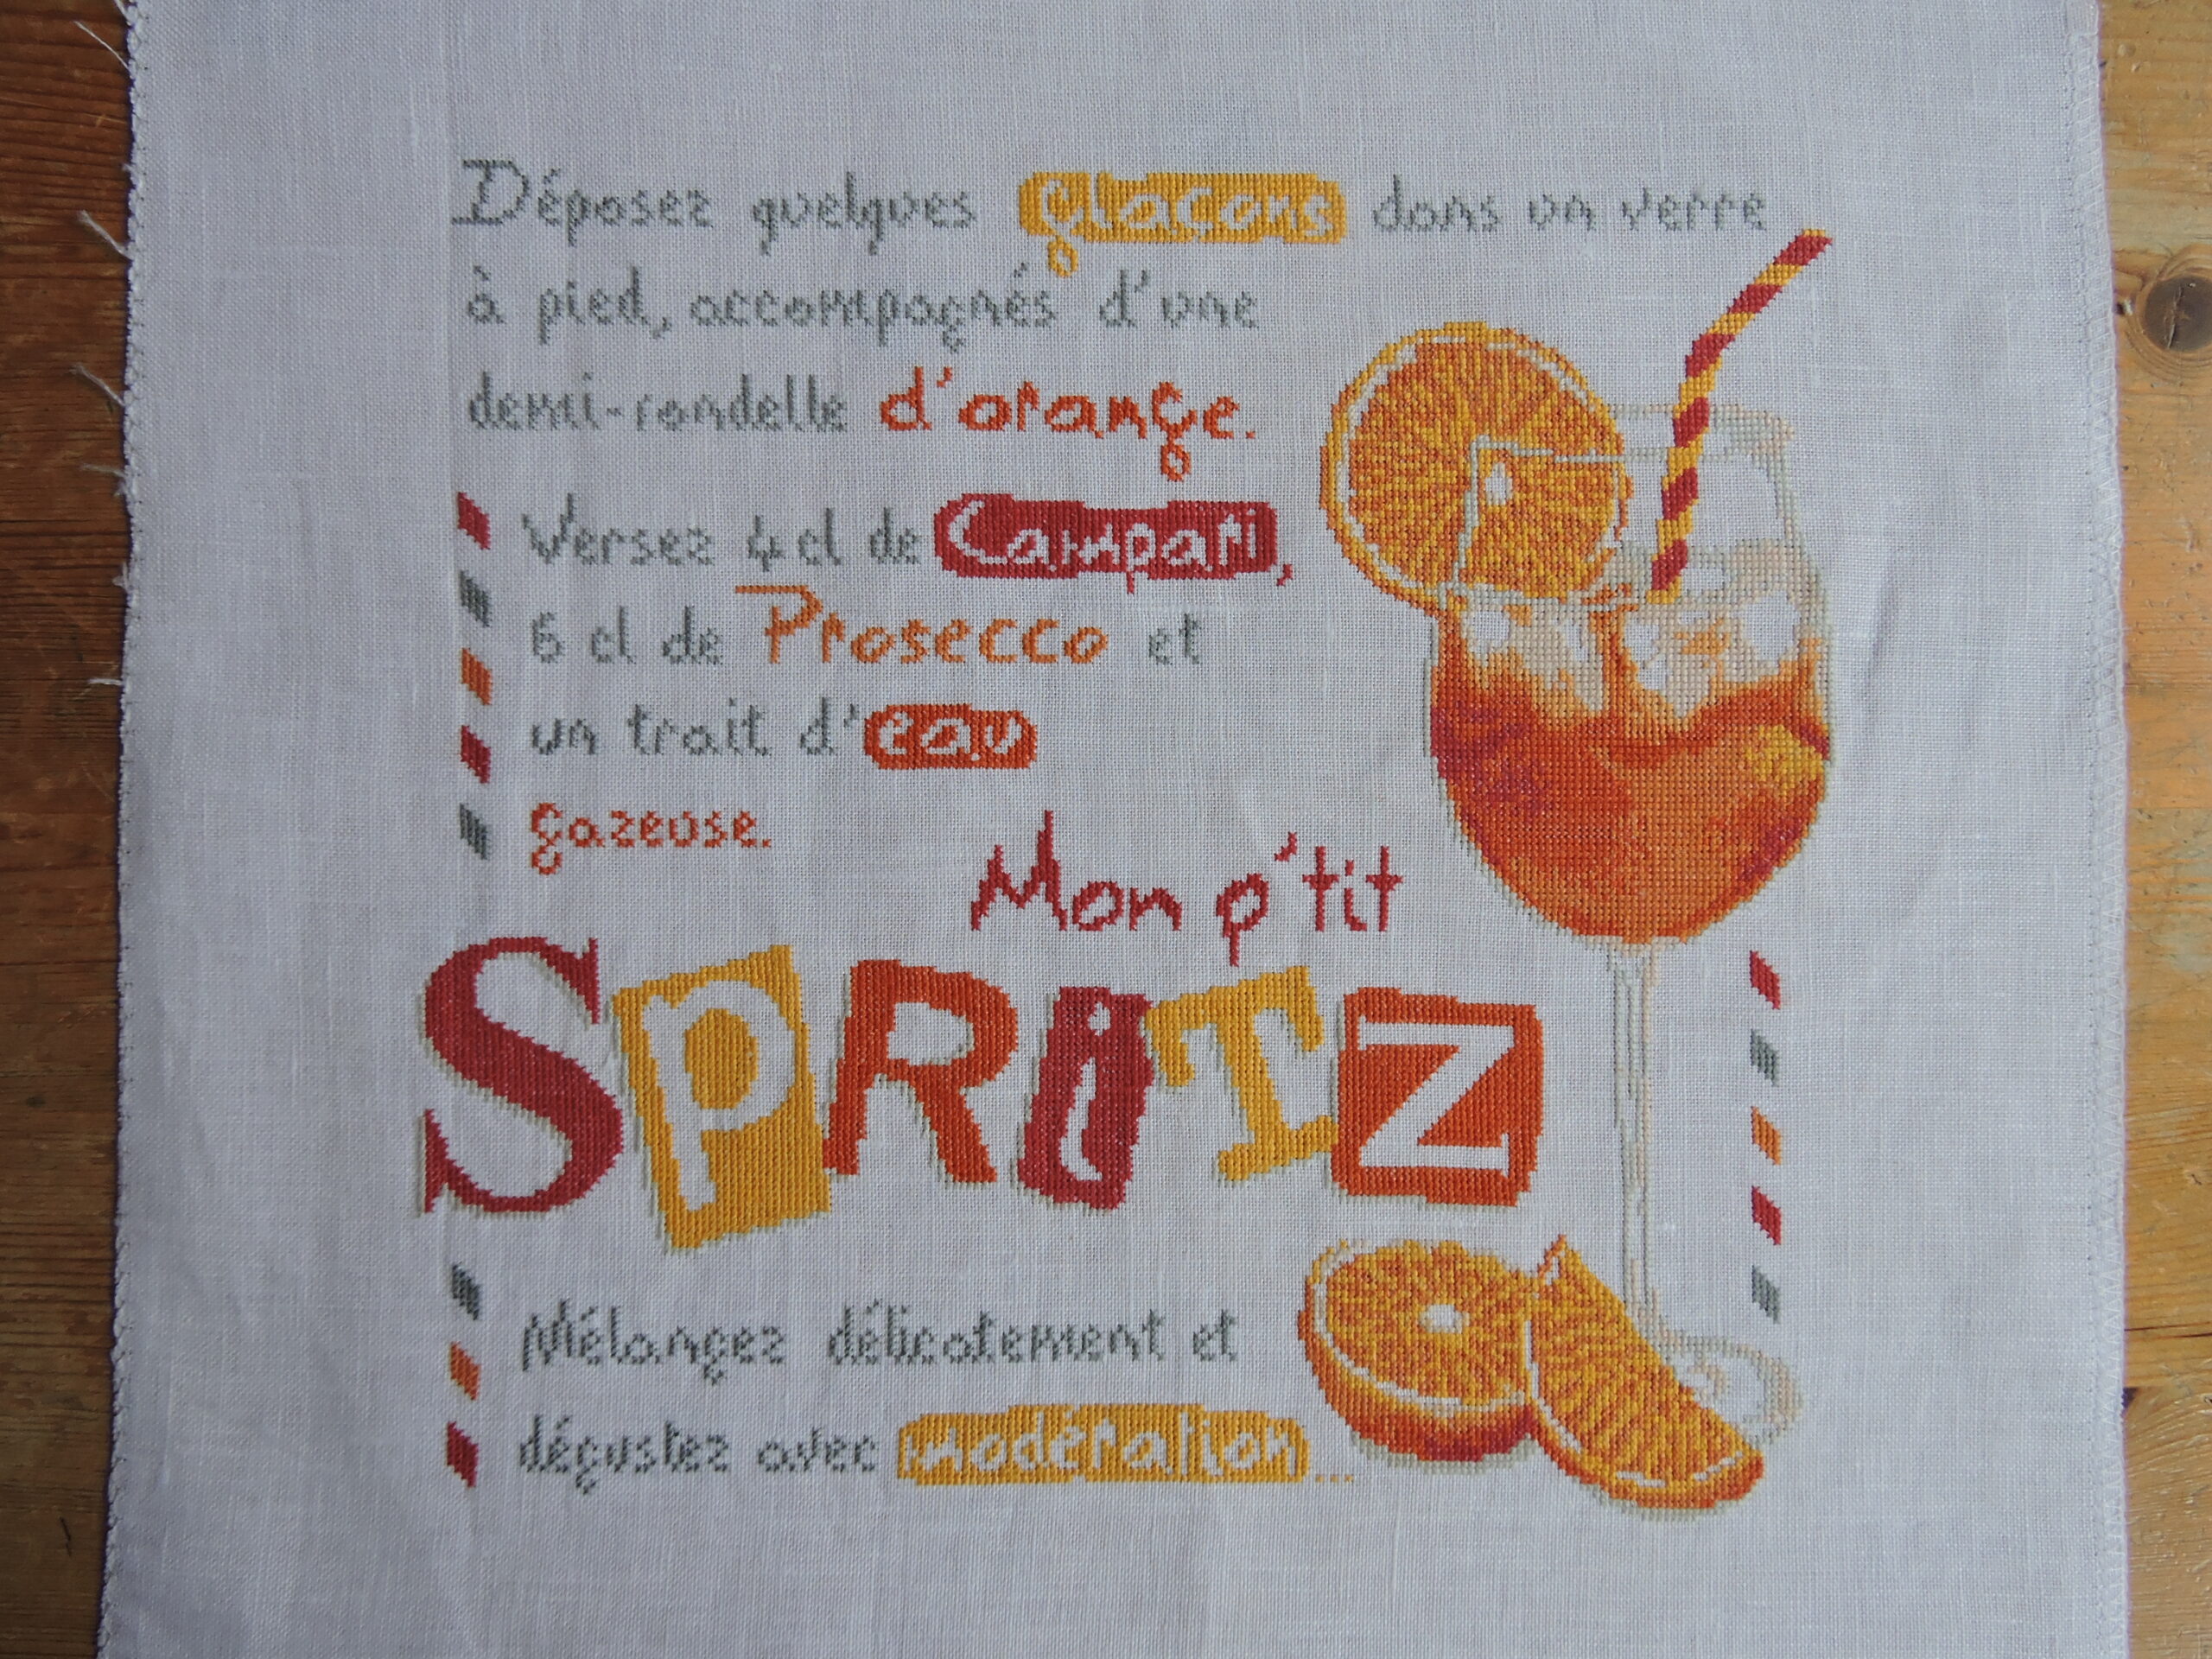 Déposez quelques glaçons dans un verre
à pied, accompagnés d'une
demi-rondelle d'orange.
Versez 4 cl de Campari,
6 cl de Prosecco et
un trait d'eau
gazeuse.
Mon p'tit
SpRiTZ
Mélangez délicatement et
dégustez avec modération...